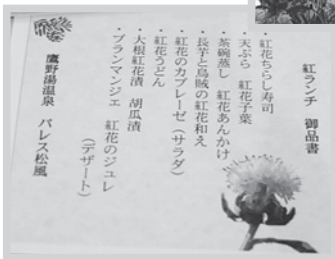 紅ランチ 御品書
・紅花ちらし寿司
・天ぷら 紅花子葉
・茶碗蒸し 紅花あんかけ
・長芋と烏賊の紅花和え
・紅花のカプレーゼ(サラダ)
・紅花うどん
・大根紅花漬 胡瓜漬
・ブランマンジェ 紅花のジュレ
(デザート)
鷹野湯温泉 パレス松風